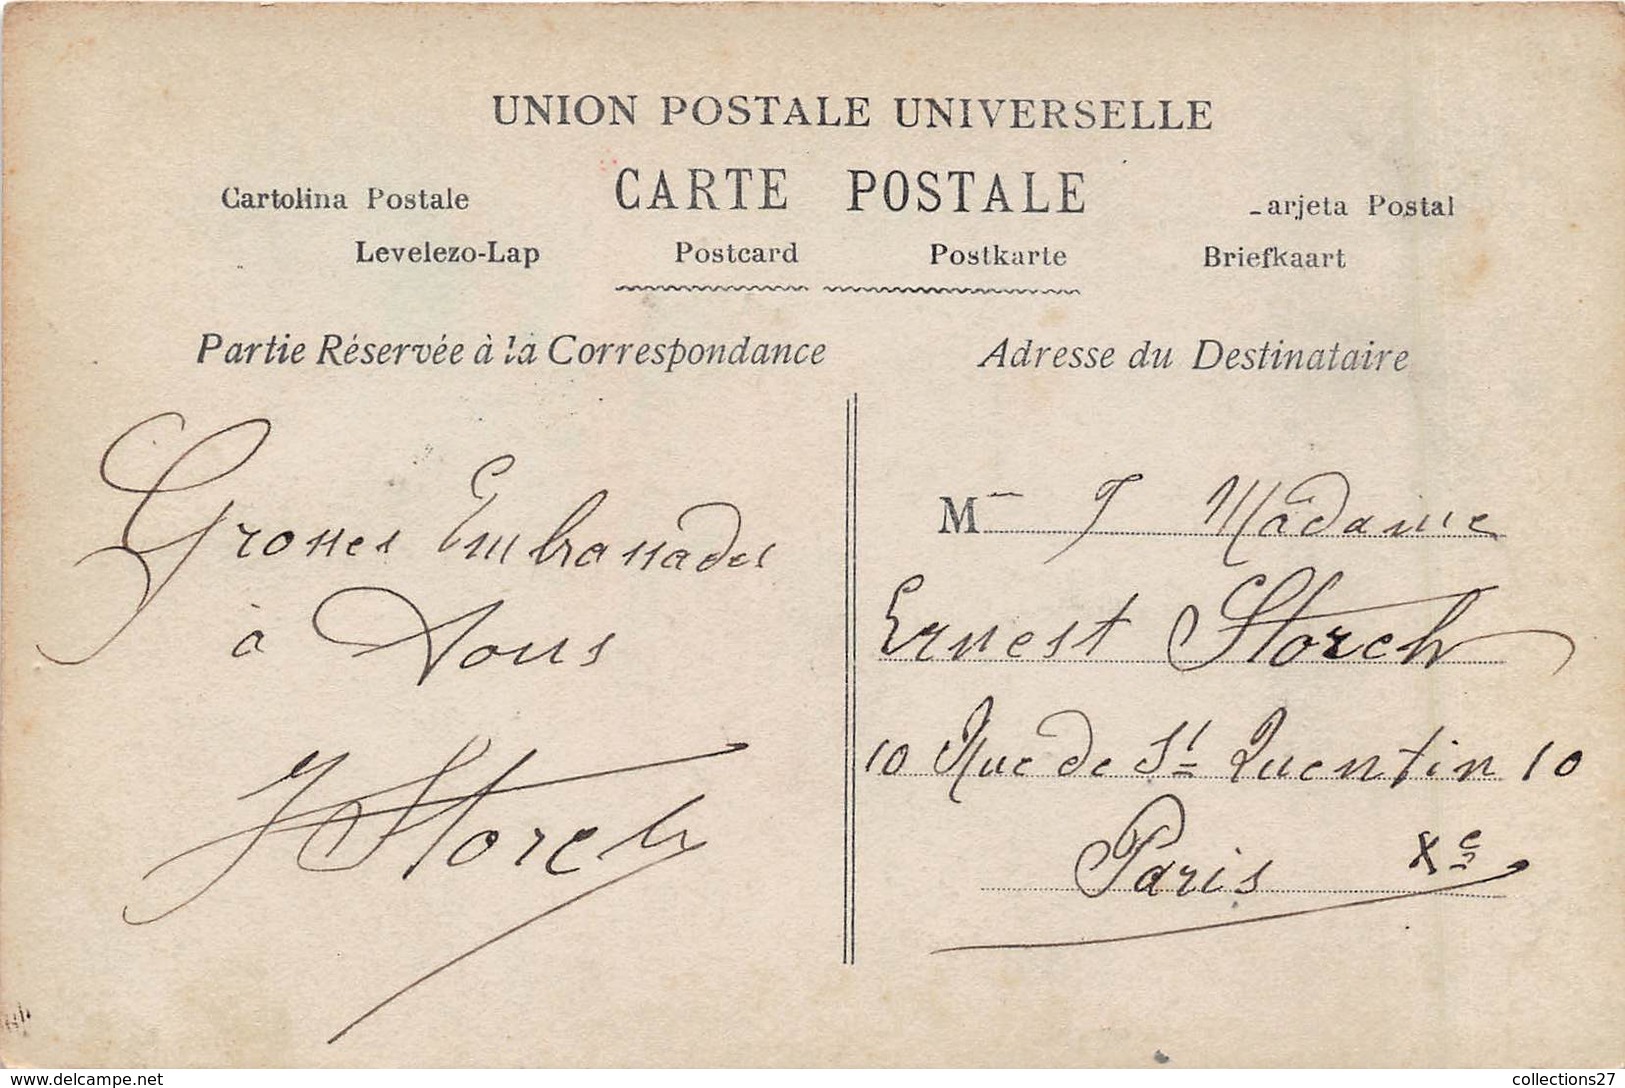 UNION POSTALE UNIVERSELLE
CARTE POSTALE
Cartolina Postale arjeta Postal
Levelezo-Lap Postcard Postkarte Briefkaart
Partie Réservée à la Correspondance
Grosses Embrassades
à Tous
J Storch
Adresse du Destinataire
M Madame
Ernest Storch
10 Rue de St Quentin 10
Paris Xe
www.delcampe.net
collections27